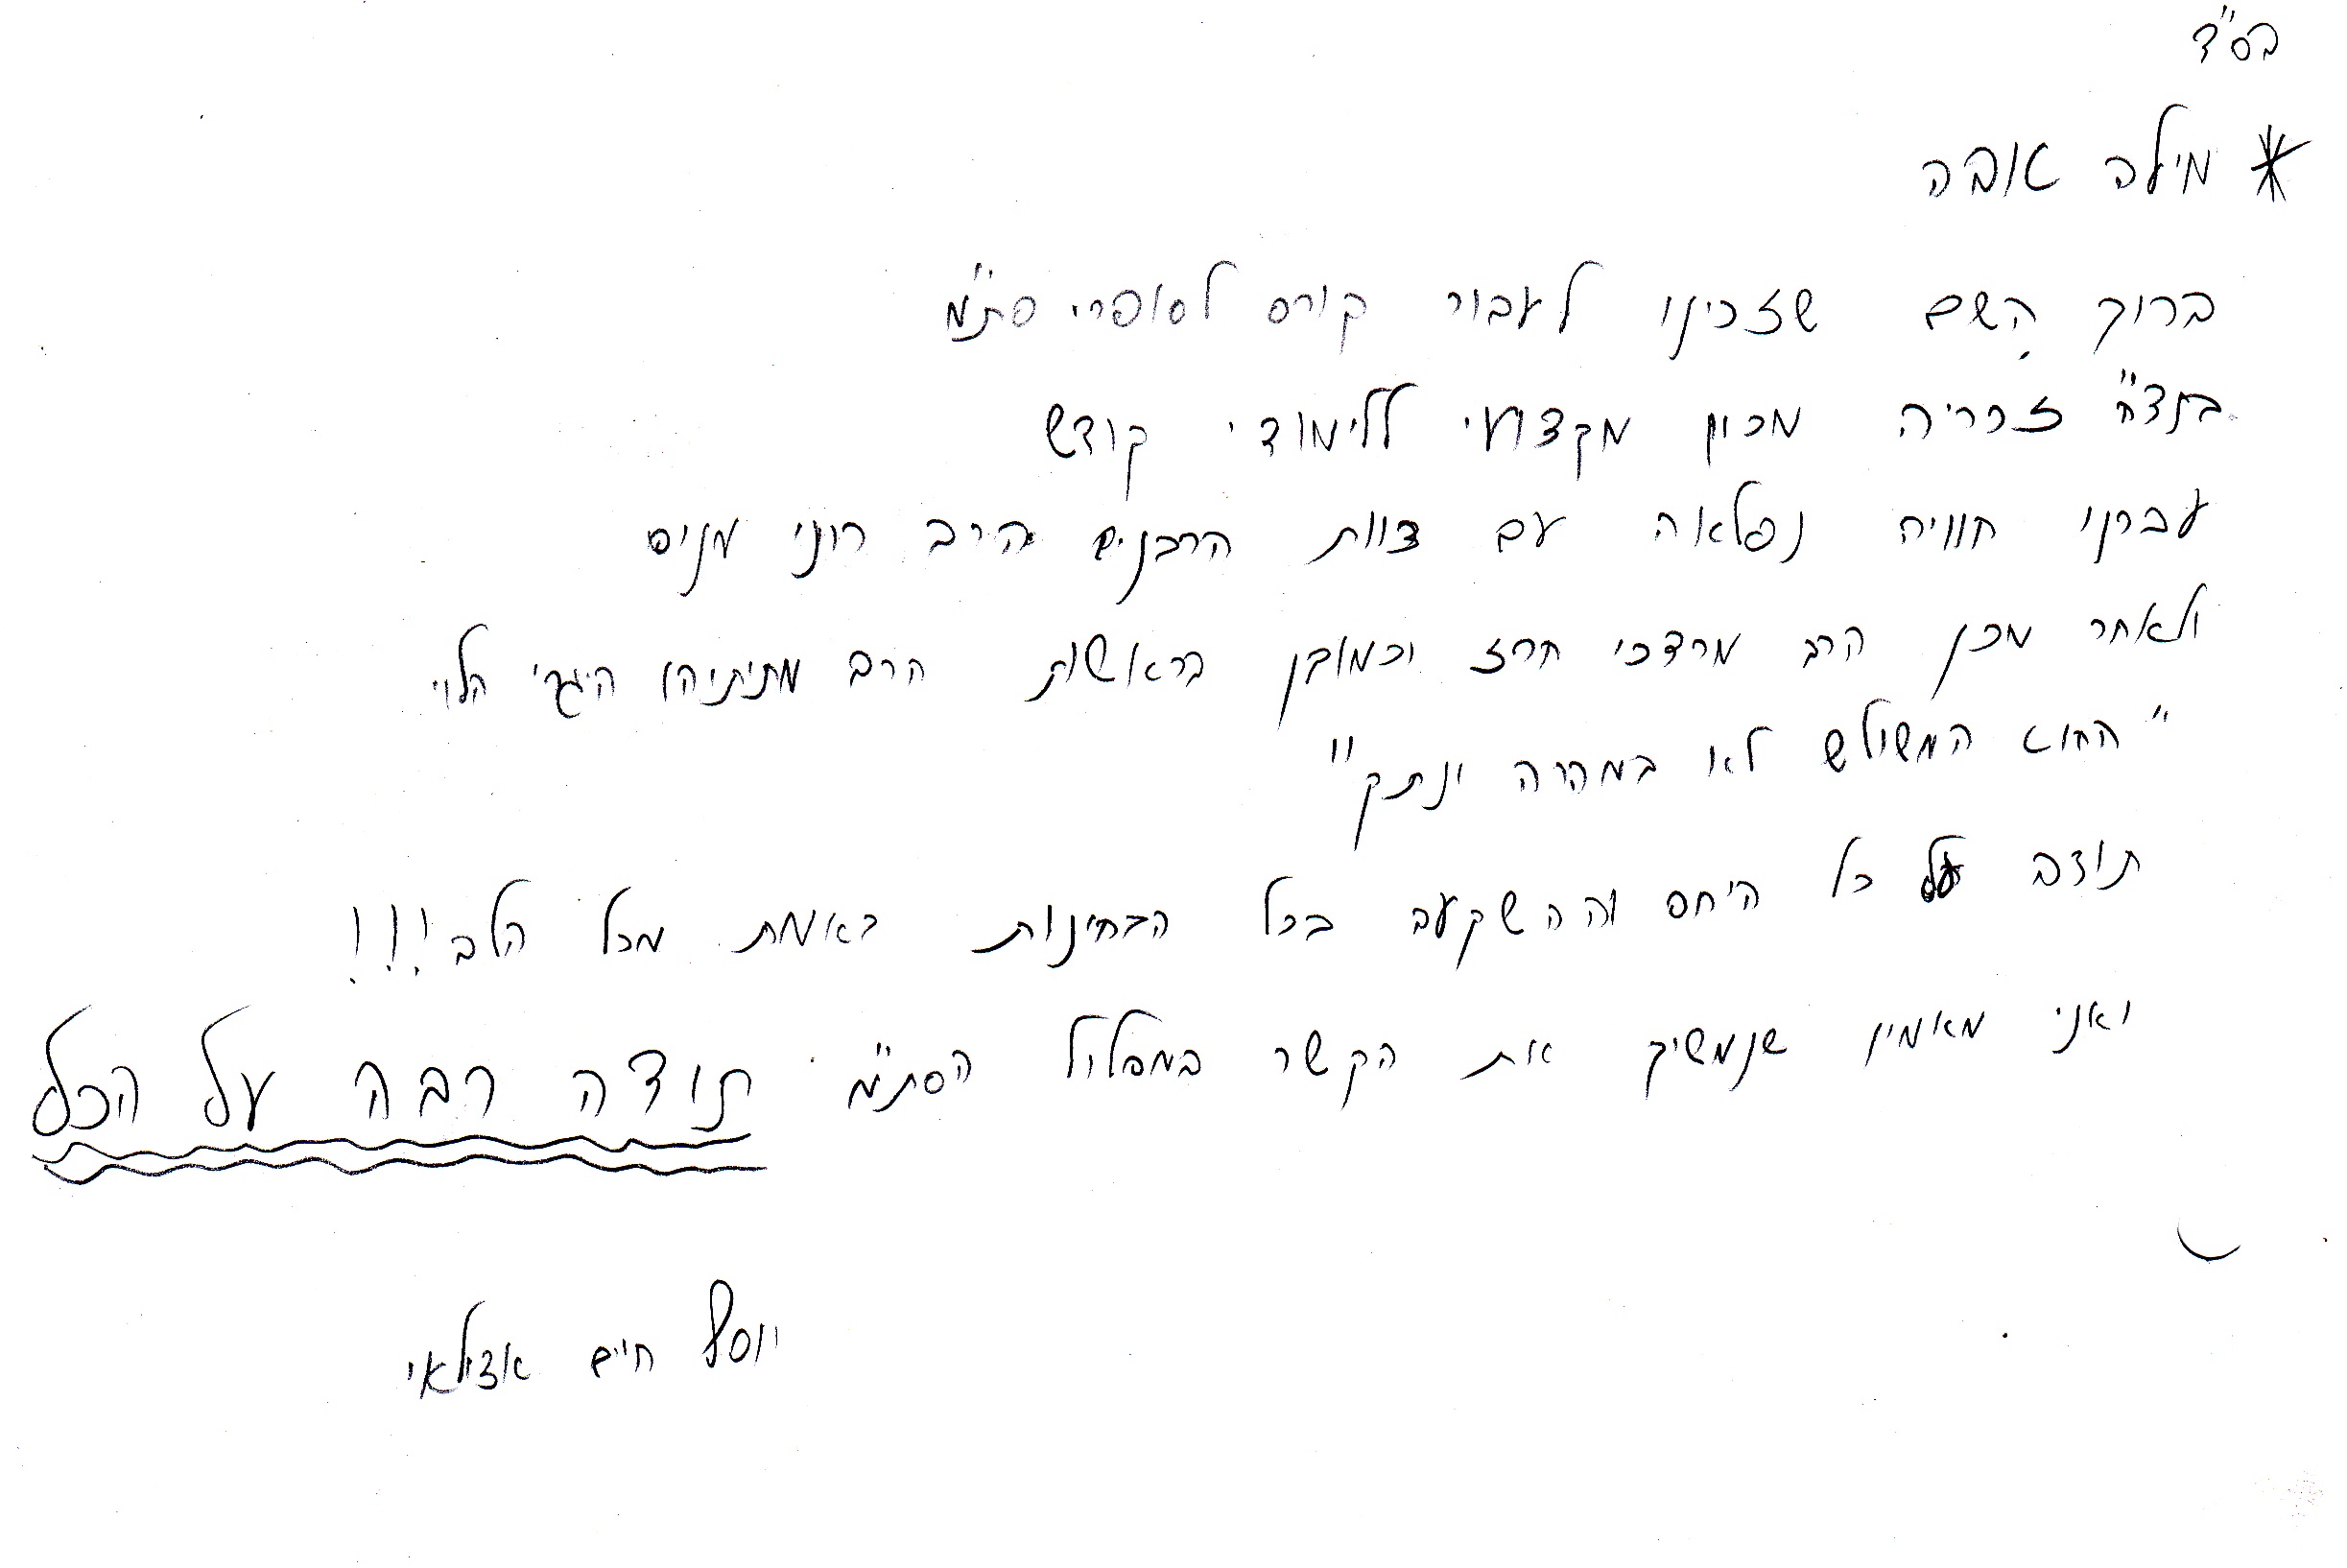 בס"ד
* מילה טובה
ברוך השם שזכינו לעבור קורס לסופרי סת"ם
בנצח זכריה מכון מקצועי ללימודי קודש
עברנו חוויה נפלאה עם צוות הרבנים הרב רוני מניס
ולאחר מכן הרב מרדכי חרז וכמובן בראשות הרב מתיתיהו הלוי
"החוט המשולש לא במהרה ינתק"
תודה על כל היחס וההשקעה בכל הבחינות באמת מכל הלב!!!
ואני מאמין שנמשיך את הקשר במפלול הסת"ם תודה רבה על הכל
יוסף חיים אזולאי